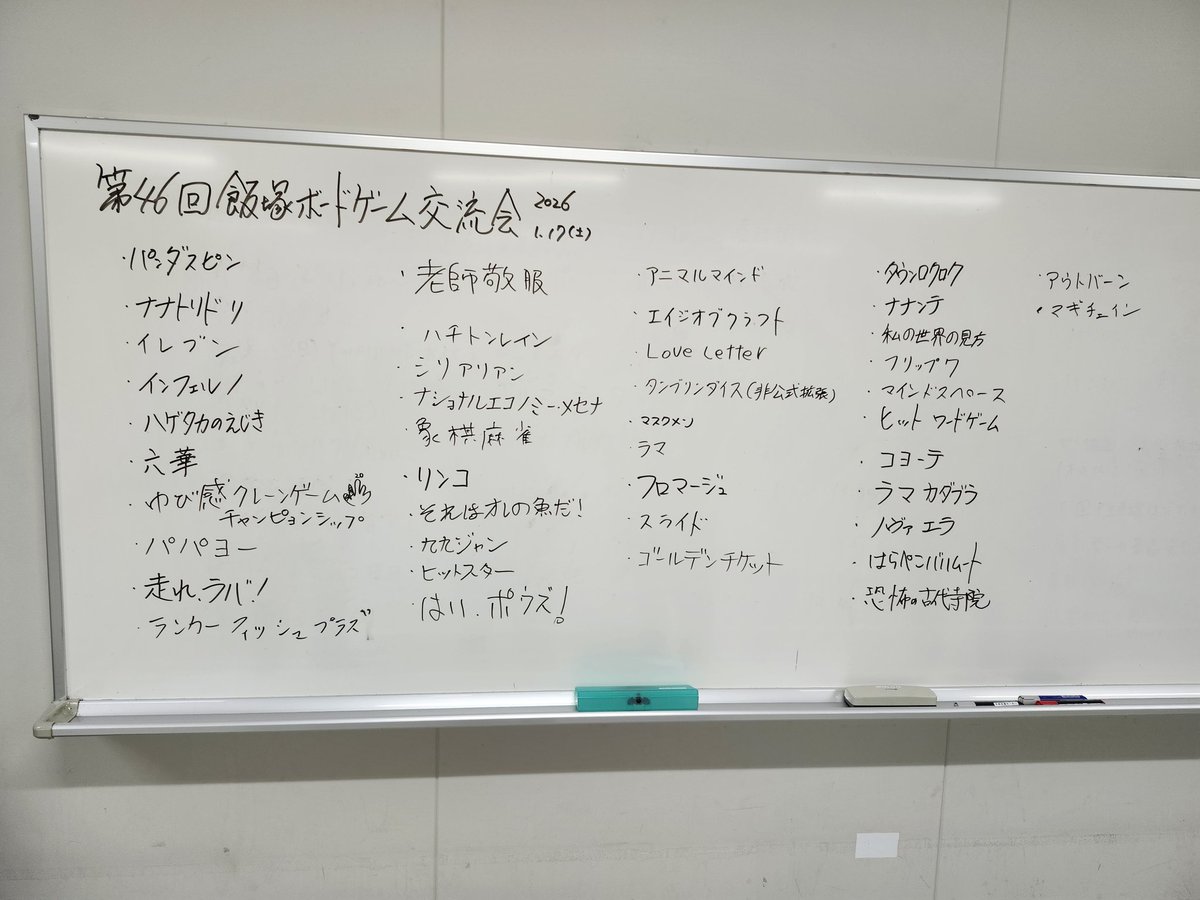 第46回飯塚ボードゲーム交流会 2026
1.17(土)
・パンダスピン
・ナナトリドリ
・イレブン
・インフェルノ
・ハゲタカのえじき
・六華
・ゆび感クレーンゲーム
チャンピョンシップ
・パパヨー
・走れ、ラバ!
・ランカーフィッシュプラズ
・老師敬服
・ハチトンレイン
・シリアリアン
・ナショナルエコノミー・メセナ
・象棋麻雀
・リンコ
・それはオレの魚だ!
・九九ジャン
・ヒットスター
・はい、ポウズ!
・アニマルマインド
・エイジオブクラフト
・Love Letter
・タンブリンダイス(非公式拡張)
・マスクメン
・ラマ
・フロマージュ
・スライド
・ゴールデンチケット
・タウンロクロク
・ナナンテ
・私の世界の見方
・フリップ7
・マインドスペース
・ヒット ワードゲーム
・コヨーテ
・ラマカダブラ
・ノヴァエラ
・はらぺこバハムート
・恐怖の古代寺院
・アウトバーン
・マギチェイン